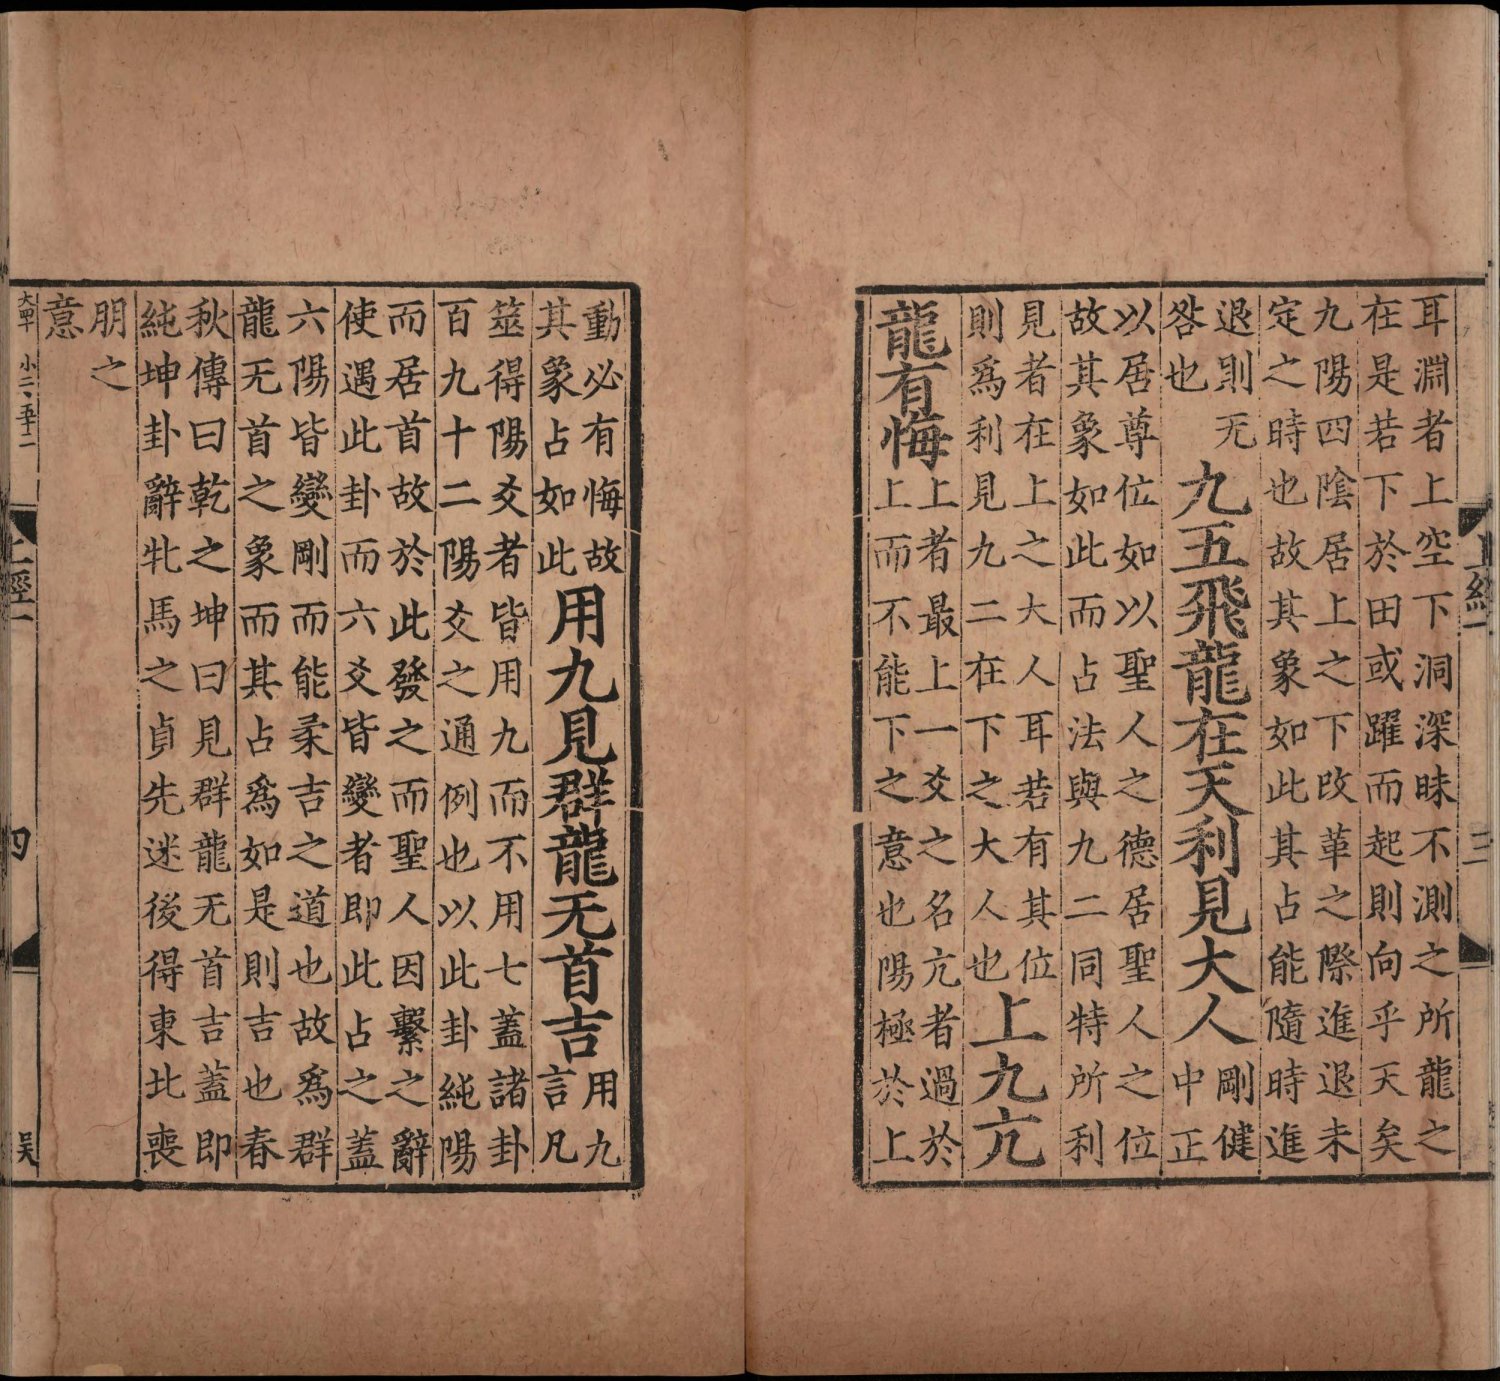 上經一
三
耳淵者上空下洞深昧不測之所龍之
在是若下於田或躍而起則向乎天矣
九陽四陰居上之下改革之際進退未
定之時也故其象如此其占能隨時進
退則无
咎也
九五飛龍在天利見大人
剛健
中正
以居尊位如以聖人之德居聖人之位
故其象如此而占法與九二同特所利
見者在上之大人耳若有其位
則爲利見九二在下之大人也
上九亢
龍有悔
上者最上一爻之名亢者過於
上而不能下之意也陽極於上
動必有悔故
其象占如此
用九見群龍无首吉
用九
言凡
筮得陽爻者皆用九而不用七蓋諸卦
百九十二陽爻之通例也以此卦純陽
而居首故於此發之而聖人因繫之辭
使遇此卦而六爻皆變者即此占之蓋
六陽皆變剛而能柔吉之道也故爲群
龍无首之象而其占爲如是則吉也春
秋傳曰乾之坤曰見群龍无首吉蓋即
純坤卦辭牝馬之貞先迷後得東北喪
朋之
意
上經一
四
吴